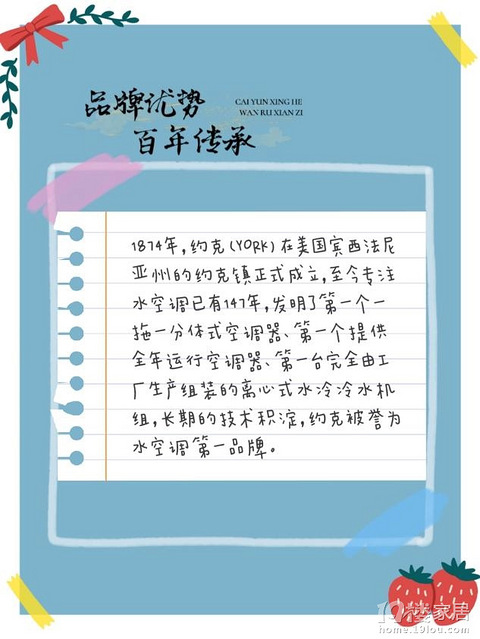 品牌优势
CAI YUN XING HE
WAN RU XIAN ZI
百年传承
1874年，约克(YORK)在美国宾西法尼
亚州的约克镇正式成立，至今专注
水空调已有147年，发明了第一个一
拖一分体式空调器、第一个提供
全年运行空调器、第一台完全由工
厂生产组装的离心式水冷冷水机
组，长期的技术积淀，约克被誉为
水空调第一品牌。
19楼家居
home.19lou.com